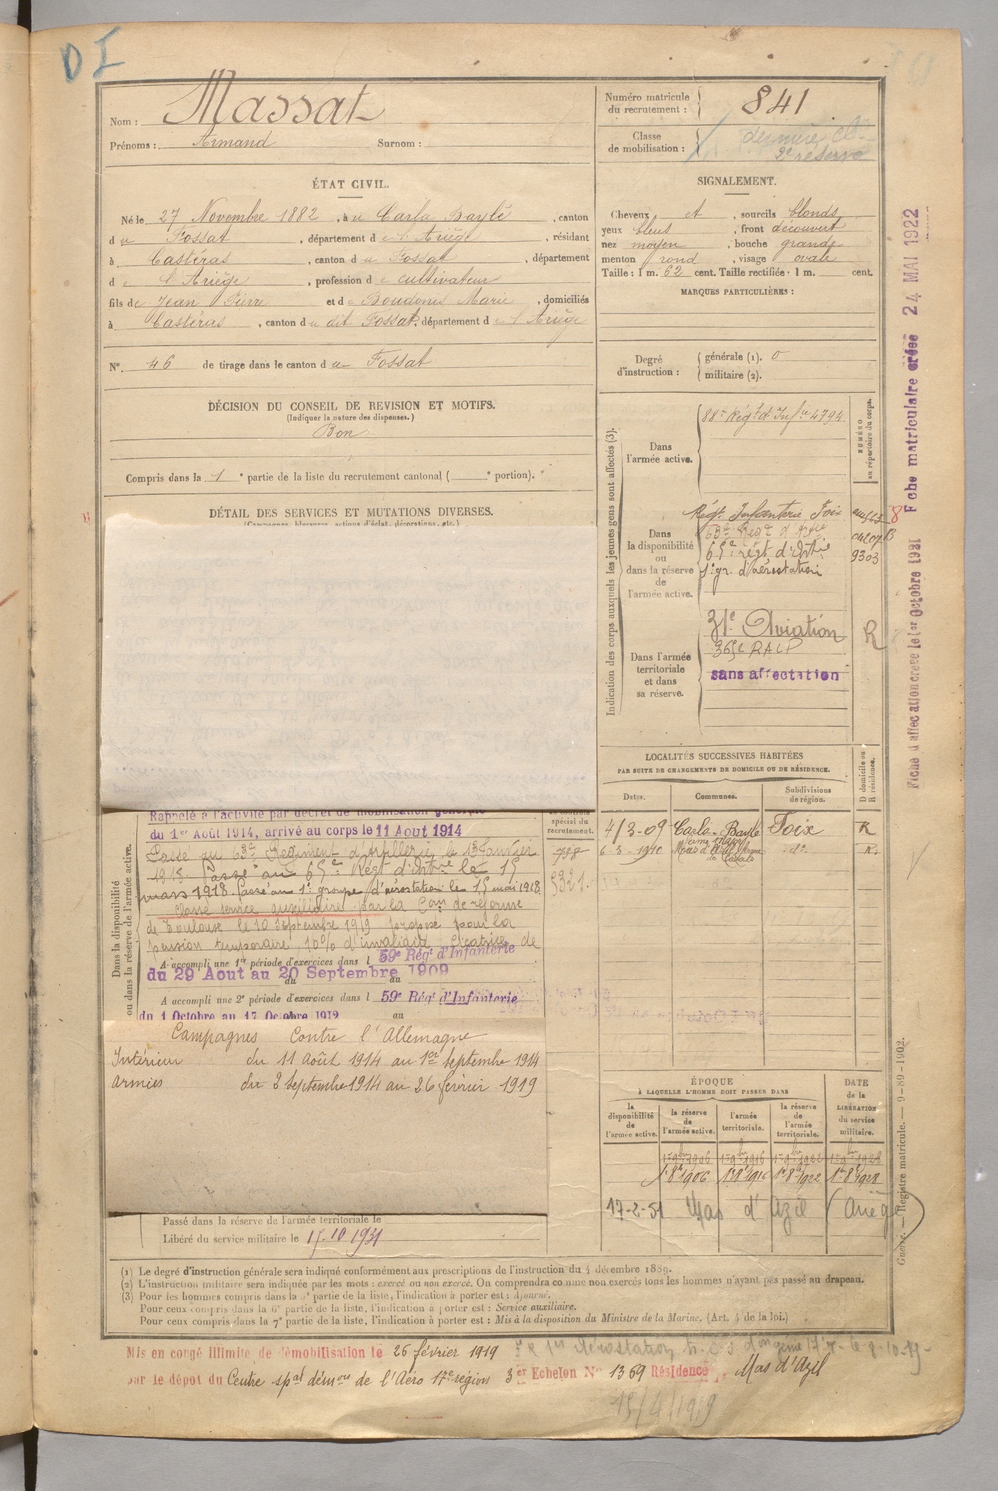 D I
Nom : Massat
Prénoms : Armand Surnom :
Numéro matricule
du recrutement : 841
Classe
de mobilisation : dernière Cl.
2e réserve
ÉTAT CIVIL.
Né le 27 Novembre 1882, à u Carla Bayle, canton
d u Fossat, département d e l'Ariège, résidant
à Castéras, canton d u Fossat, département
d e l'Ariège, profession d e cultivateur
fils de Jean Pierre et d e Boudonis Marie, domiciliés
à Castéras, canton d u dit Fossat, département d e l'Ariège
N°. 46 de tirage dans le canton d u Fossat
SIGNALEMENT.
Cheveux et, sourcils blonds
yeux bleus, front découvert
nez moyen, bouche grande
menton rond, visage ovale
Taille : 1 m. 62 cent. Taille rectifiée : 1 m. cent.
MARQUES PARTICULIÈRES :
Degré
d'instruction :
générale (1). 0
militaire (2).
DÉCISION DU CONSEIL DE REVISION ET MOTIFS.
(Indiquer la nature des dispenses.)
Bon
Compris dans la 1e partie de la liste du recrutement cantonal ( e portion).
DÉTAIL DES SERVICES ET MUTATIONS DIVERSES.
(Campagnes, blessures, actions d'éclat, décorations, etc.)
Indication des corps auxquels les jeunes gens sont affectés (3).
NUMÉRO
au répertoire du corps.
Dans
l'armée active.
88e Régt d'Infie 4794
Dans
la disponibilité
ou
dans la réserve
de
l'armée active.
Régt Infanterie Foix
63e Régt d'Artie
65e régt d'Artie 9303
1er gr. d'aérostation
Dans l'armée
territoriale
et dans
sa réserve.
31e Aviation R
365e RALP
sans affectation
Fiche d'affectation créée le 1er Octobre 1921 Fche matriculaire créée 24 MAI 1922
LOCALITÉS SUCCESSIVES HABITÉES
PAR SUITE DE CHANGEMENTS DE DOMICILE OU DE RÉSIDENCE.
Dates. Communes. Subdivisions
de région.
D domicile ou
R résidence.
4/3-09 Carla-Bayle Foix R
6-3-1910 Mas d'Azil do R.
Dans la disponibilité
ou dans la réserve de l'armée active.
Rappelé à l'activité par décret de mobilisation générale
du 1er Août 1914, arrivé au corps le 11 Aout 1914
Passé au 63e Régiment d'Artillerie le 13 Janvier
1918. Passé au 65e Régt d'Artie le 15
mars 1918. Passé au 1er groupe d'aérostation le 15 mai 1918.
Classé service auxiliaire par la Com. de réforme
de Toulouse le 10 Septembre 1919 proposé pour la
pension temporaire 10% d'invalidité Cicatrice de
A accompli une 1re période d'exercices dans l 59e Régt d'Infanterie
du 29 Aout au 20 Septembre 1909
du au
A accompli une 2e période d'exercices dans l 59e Régt d'Infanterie
du 1 Octobre au 17 Octobre 1912
au
spécial du
recrutement.
758
5321
Campagnes Contre l'Allemagne
Intérieur du 11 Août 1914 au 1er Septembre 1914
Armées du 2 Septembre 1914 au 26 février 1919
Passé dans la réserve de l'armée territoriale le
Libéré du service militaire le 15-10 1931
ÉPOQUE
À LAQUELLE L'HOMME DOIT PASSER DANS
la
disponibilité
de
l'armée active.
la réserve
de
l'armée active.
l'armée
territoriale.
la réserve
de
l'armée
territoriale.
DATE
de la
LIBÉRATION
du service
militaire.
1er 9bre 1906 1er 9bre 1916 1er 9bre 1922 1er 9bre 1928
1er 8bre 1906 1er 8bre 1916 1er 8bre 1922 1er 8bre 1928
17-2-51 Mas d'Azil (Ariège)
Guerre. — Registre matricule. — 9-89-1902.
(1) Le degré d'instruction générale sera indiqué conformément aux prescriptions de l'instruction du 4 décembre 1889.
(2) L'instruction militaire sera indiquée par les mots : exercé ou non exercé. On comprendra comme non exercés tous les hommes n'ayant pas passé au drapeau.
(3) Pour les hommes compris dans la 5e partie de la liste, l'indication à porter est : Ajourné.
Pour ceux compris dans la 6e partie de la liste, l'indication à porter est : Service auxiliaire.
Pour ceux compris dans la 7e partie de la liste, l'indication à porter est : Mis à la disposition du Ministre de la Marine. (Art. 4 de la loi.)
Mis en congé illimité de démobilisation le 26 février 1919
par le dépôt du Centre spal démou de l'Aéro 17e région 3er Echelon No 1369 Résidence, Mas d'Azil
15/4/1919